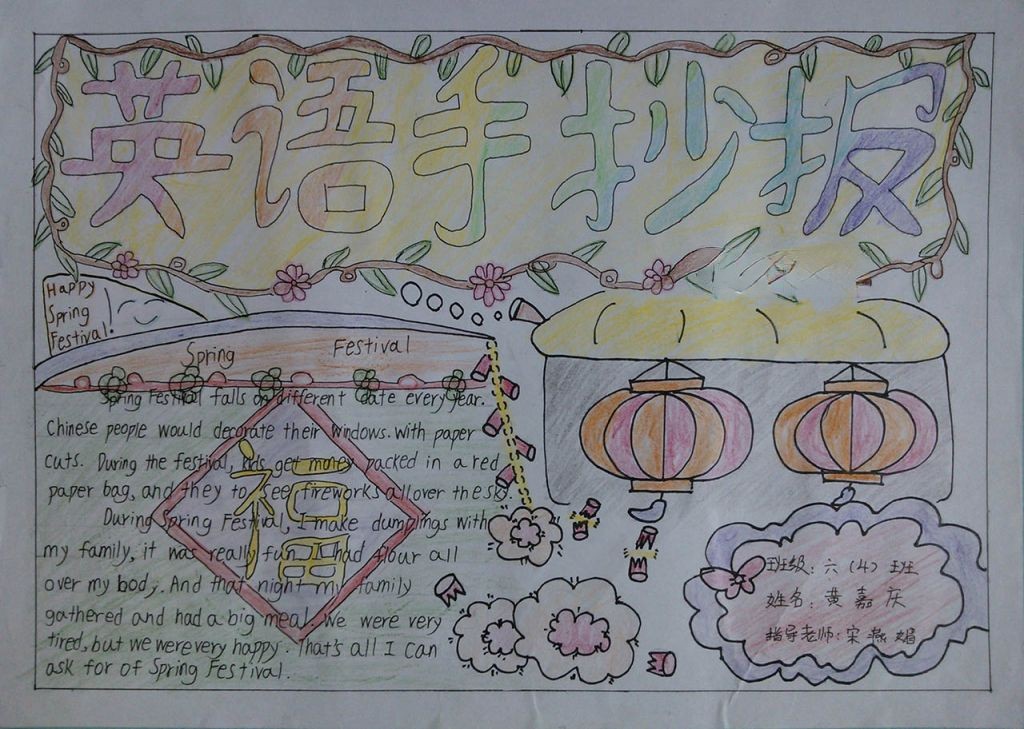 英语手抄报
Happy
Spring
Festival!
Spring Festival
Spring Festival falls on different date every year.
Chinese people would decorate their windows. with paper
cuts. During the festival, kids get money packed in a red
paper bag, and they to see fireworks allover the sky.
During Spring Festival, I make dumplings with
my family, it was really fun. I had flour all
over my body. And that night my family
gathered and had a big meal. We were very
tired, but we were very happy. That's all I can
ask for of Spring Festival.
福
班级: 六 (4) 班
姓名: 黄嘉庆
指导老师: 宋燕娟